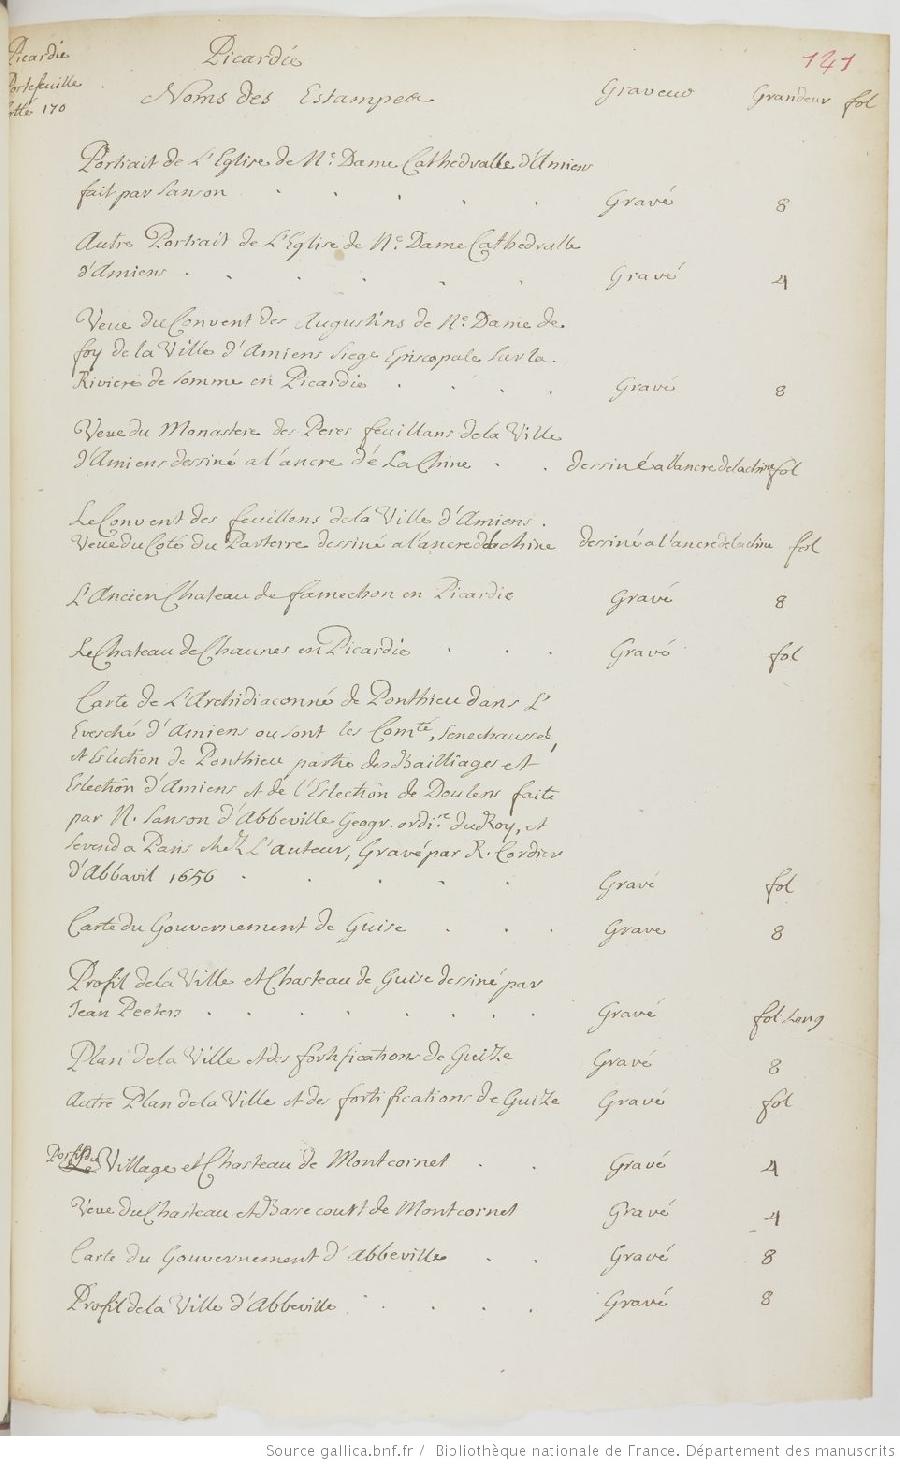 Picardie
Portefeuille
cotté 170
Picardie
141
Noms des Estampes
Graveur
Grandeur
fol
Portrait de L'Eglise de Nre. Dame Cathedralle d'Amiens
fait par Sanson
Gravé
8
Autre Portrait de L'Eglise de Ne. Dame Cathedralle
d'Amiens
Gravé
4
Veue du Convent des Augustins de Ne. Dame de
foy de la Ville d'Amiens Siege Episcopale sur la
Riviere de Somme en Picardie
Gravé
8
Veue du Monastere des Peres feuillans de la Ville
d'Amiens dessiné a l'ancre de La Chine
dessiné a l'ancre de la chine
fol
Le Convent des feuillens de la Ville d'Amiens.
Veue du Coté du Parterre dessiné a l'ancre de chine
dessiné a l'ancre de la chine
fol
L'Ancien Chateau de famechon en Picardie
Gravé
8
Le Chateau de Chaunes en Picardie
Gravé
fol
Carte de L'Archidiaconné de Ponthieu dans L'
Evesché d'Amiens ou sont les Comté, Senechaussée
et Eslection de Ponthieu partie des Bailliages et
Eslection d'Amiens et de l'Eslection de Doulens faite
par N. Sanson d'Abbeville Geogr. ordire. du Roy, et
se vend a Paris chez L'auteur, Gravé par R. Cordier
d'Abbavil 1656
Gravé
fol
Carte du Gouvernement de Guise
Grave
8
Profil de la Ville et Chasteau de Guise dessiné par
Jean Peeters
Gravé
fol Long
Plan de la Ville et des fortifications de Guize
Gravé
8
Autre Plan de la Ville et des fortifications de Guize
Gravé
fol
Village et Chasteau de Montcornet
Gravé
4
Veue du Chasteau et Basse court de Montcornet
Gravé
4
Carte du Gouvernement d'Abbeville
Gravé
8
Profil de la Ville d'Abbeville
Gravé
8
Source gallica.bnf.fr / Bibliothèque nationale de France. Département des manuscrits